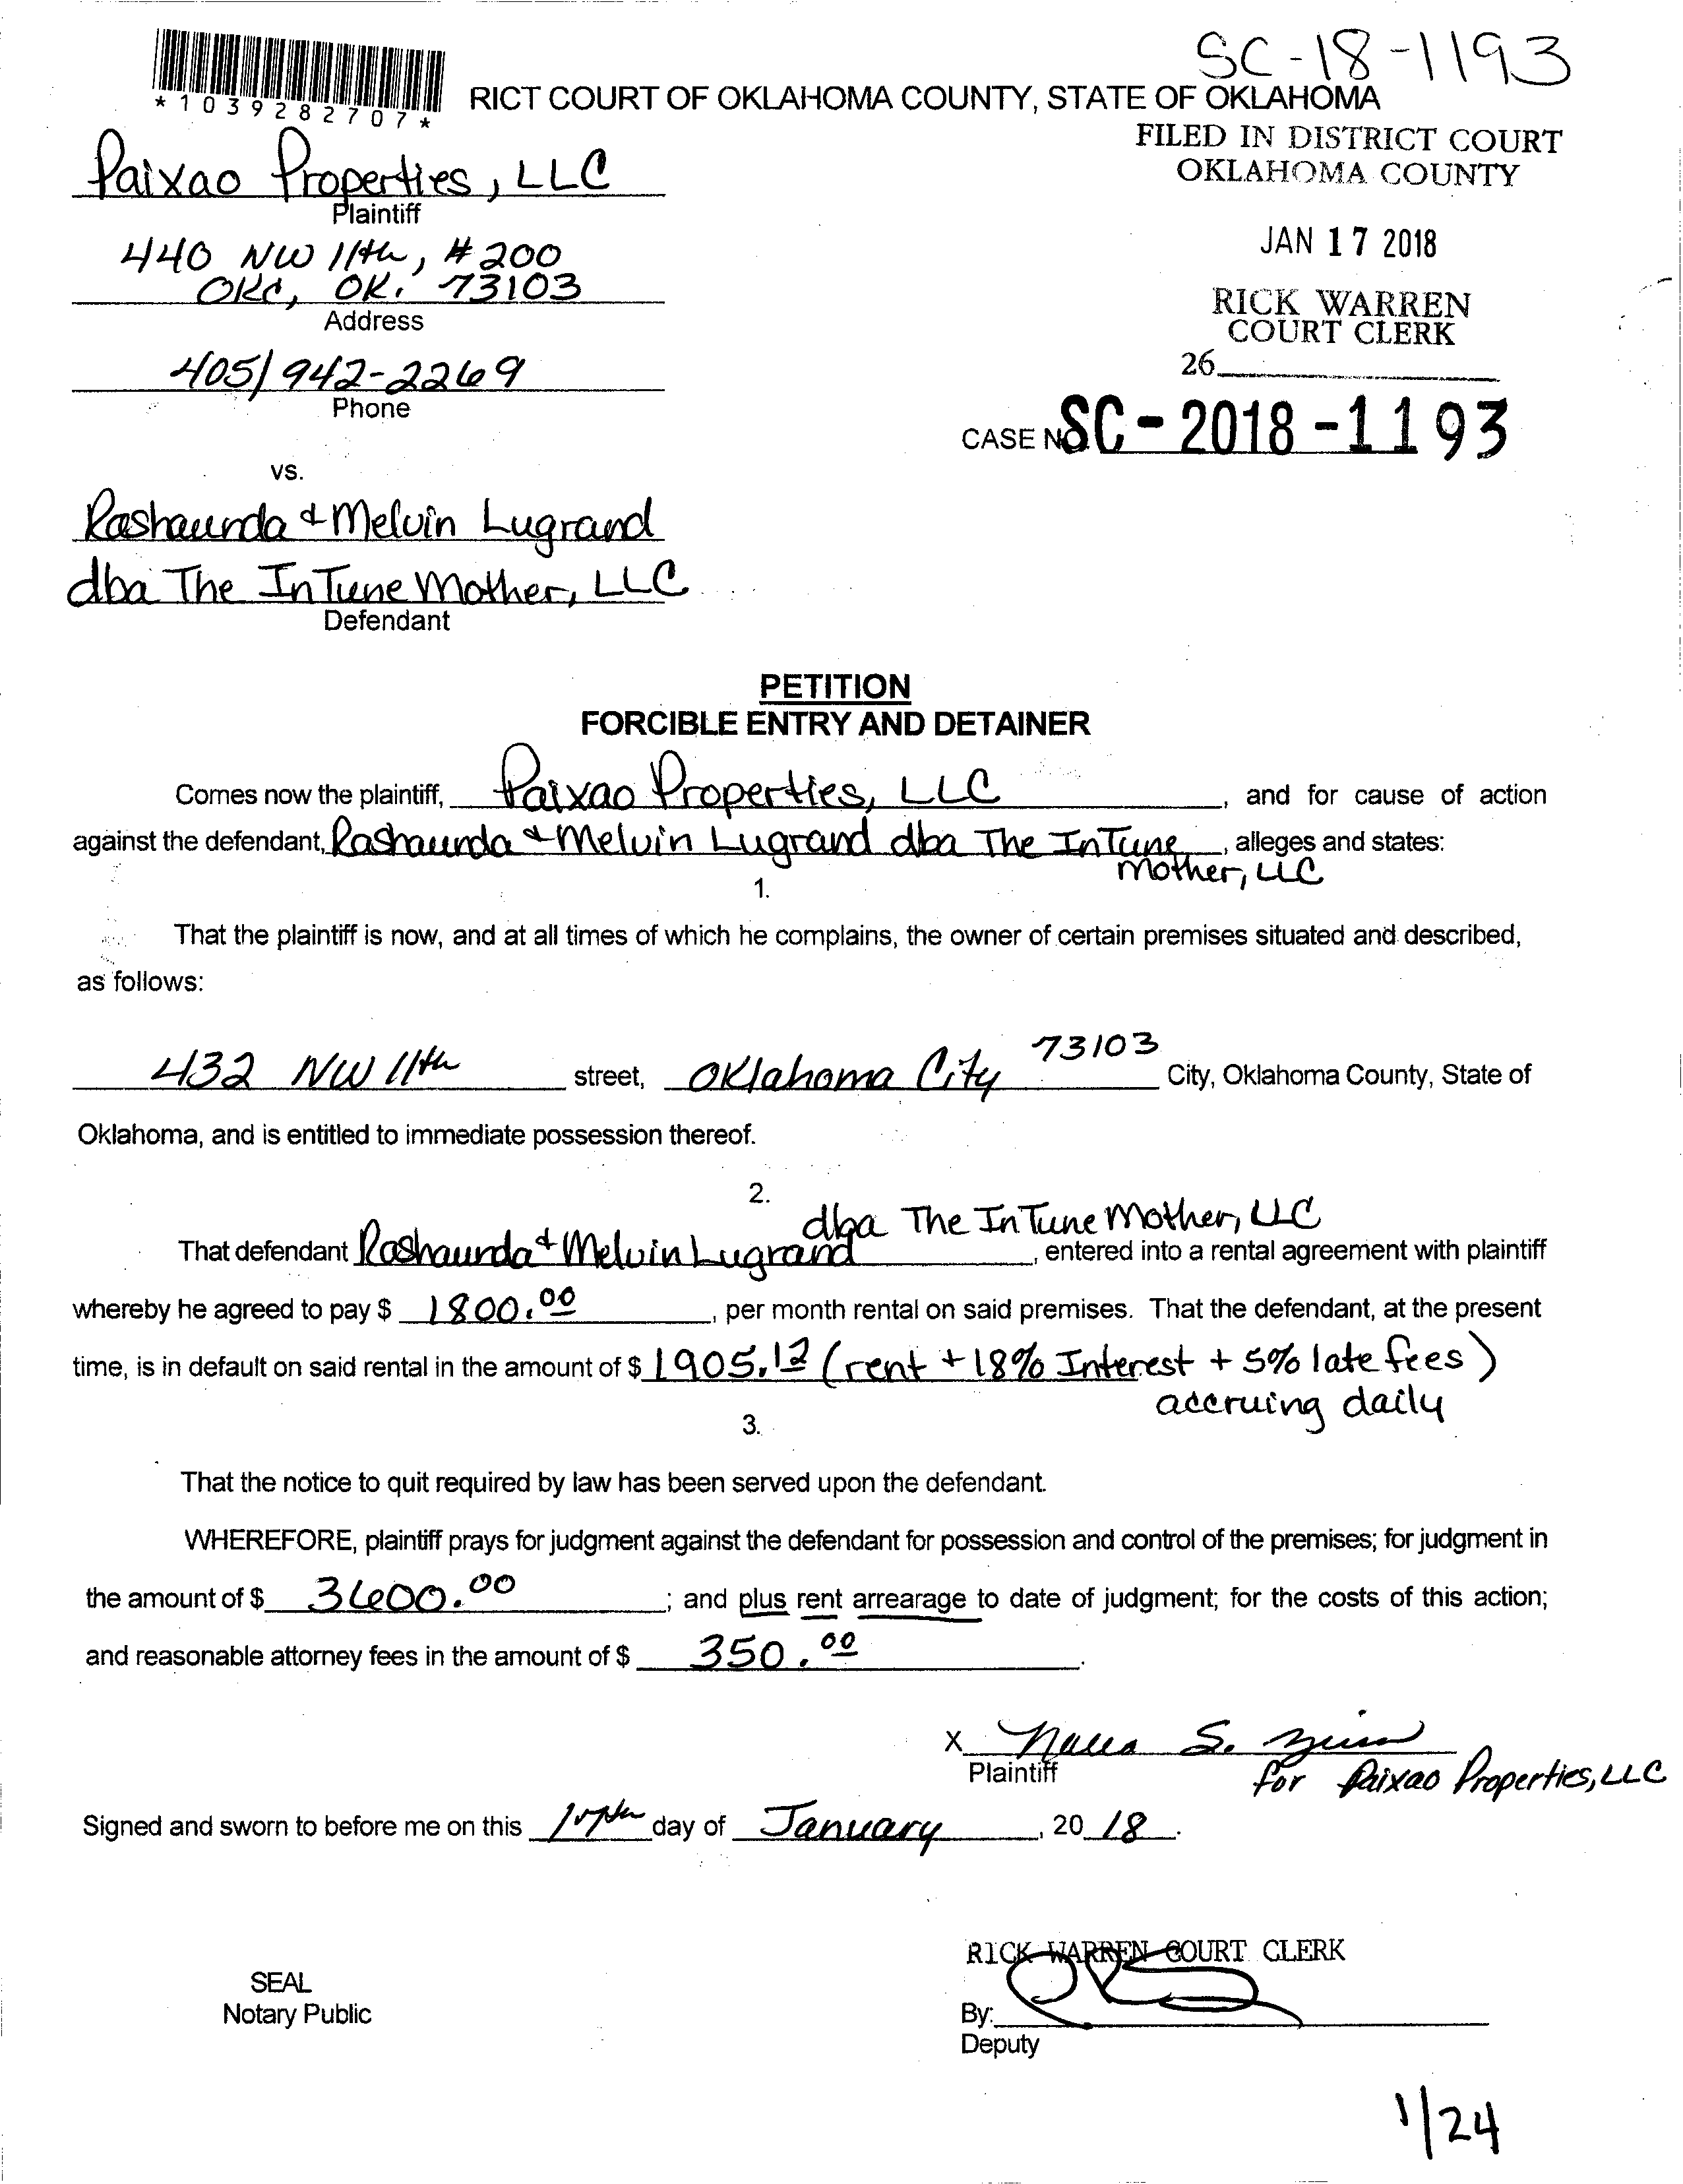 SC-18-1193
*1039282707*
RICT COURT OF OKLAHOMA COUNTY, STATE OF OKLAHOMA
FILED IN DISTRICT COURT
OKLAHOMA COUNTY
JAN 17 2018
RICK WARREN
COURT CLERK
26
CASE NO. SC-2018-1193
Paixao Properties, LLC
Plaintiff
440 NW 11th, #200
OKC, OK. 73103
Address
405/942-2269
Phone
vs.
Rashaunda & Melvin Lugrand
dba The InTune Mother, LLC
Defendant
PETITION
FORCIBLE ENTRY AND DETAINER
Comes now the plaintiff, Paixao Properties, LLC, and for cause of action
against the defendant, Rashaunda & Melvin Lugrand dba The InTune, alleges and states:
Mother, LLC
1.
That the plaintiff is now, and at all times of which he complains, the owner of certain premises situated and described,
as follows:
432 NW 11th street, Oklahoma City 73103 City, Oklahoma County, State of
Oklahoma, and is entitled to immediate possession thereof.
2.
dba The InTune Mother, LLC
That defendant Rashaunda & Melvin Lugrand, entered into a rental agreement with plaintiff
whereby he agreed to pay $ 1800.00, per month rental on said premises. That the defendant, at the present
time, is in default on said rental in the amount of $ 1905.12 (rent + 18% Interest + 5% late fees)
accruing daily
3.
That the notice to quit required by law has been served upon the defendant.
WHEREFORE, plaintiff prays for judgment against the defendant for possession and control of the premises; for judgment in
the amount of $ 3600.00; and plus rent arrearage to date of judgment; for the costs of this action;
and reasonable attorney fees in the amount of $ 350.00.
X S.
Plaintiff
for Paixao Properties, LLC
Signed and sworn to before me on this 17th day of January, 2018.
RICK WARREN COURT CLERK
SEAL
Notary Public
By:
Deputy
1/24